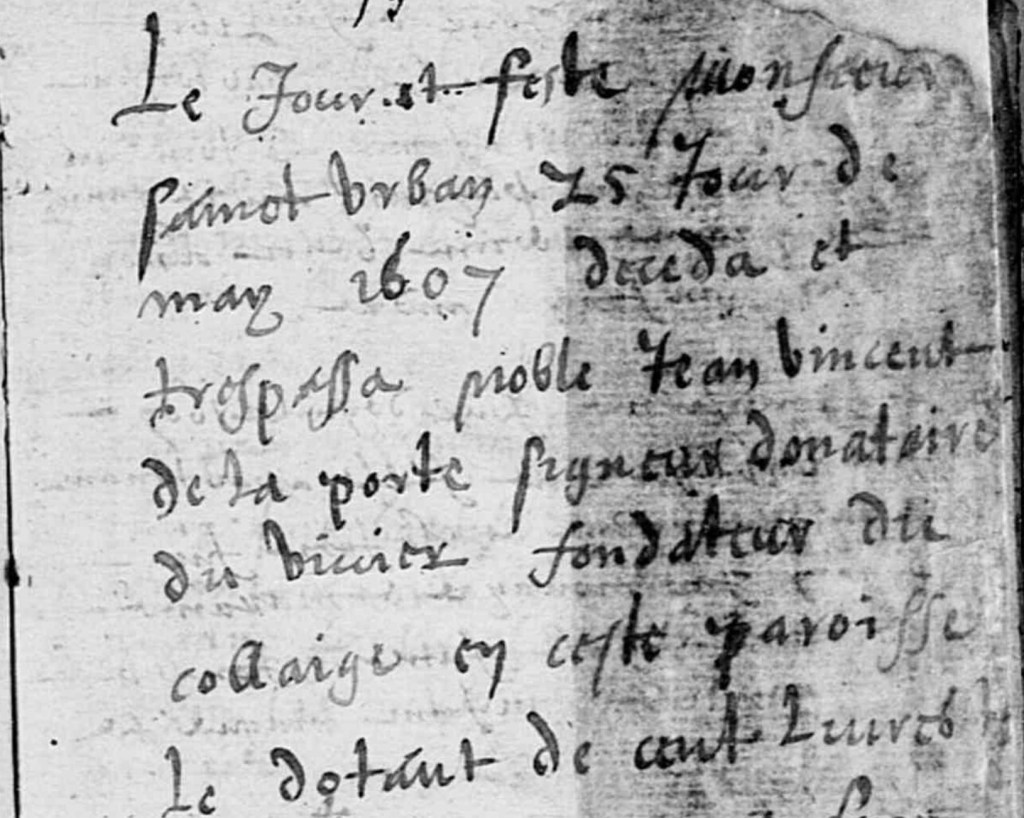 Le Jour et feste monsieur
sainct Vrban 25 Jour de
may 1607 deceda et
trespassa noble Jean Vincent
de la porte signeur donataire
du viuier fondateur du
collaige en ceste paroisse
le dotant de cent Liures